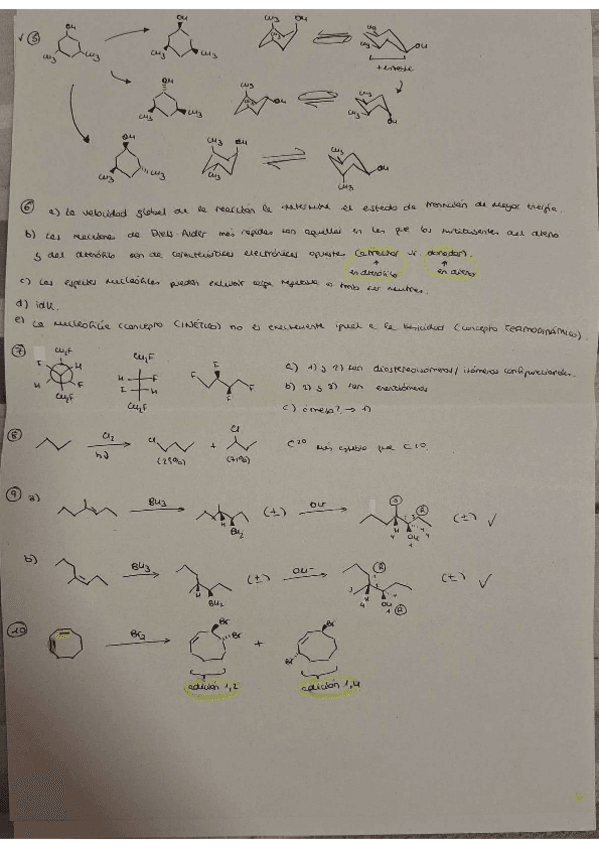 ✓ ⑤
OH
CH3 CH3
OH
CH3 CH3
CH3 OH
CH3
CH3
CH3 OH
+ estable
OH
CH3 CH3
CH3
OH
CH3
OH
OH
CH3 CH3
CH3 OH
CH3
CH3
OH
CH3
⑥ a) La velocidad global de la reacción la determina el estado de transición de mayor energía.
b) Las reacciones de Diels-Alder más rápidas son aquellas en las que los sustituyentes del dieno
y del dienófilo son de características electrónicas opuestas (atractor vs donador).
↑ ↑
en dienófilo en dieno
c) Las especies nucleófilas pueden exhibir carga negativa o ser neutras.
d) idk.
e) La nucleofilia (concepto CINÉTICO) no es exactamente igual a la basicidad (concepto TERMODINÁMICO).
⑦ CH2F
F H
H F
CH2F
CH2F
H F
F H
CH2F
F F
F F
a) 1) y 2) son diastereoisómeros / isómeros configuracionales.
b) 2) y 3) son enantiómeros
c) ¿meso? → 1)
⑧ Cl2
hν
Cl + Cl
(29%) (71%)
C2º más estable que C1º.
⑨ a) BH3
H
BH2
(±) OH-
S R
H OH
(±) ✓
b) BH3
H
BH2
(±) OH-
R
H OH
R
(±) ✓
⑩ Br2
Br
Br
+
Br
Br
adición 1,2 adición 1,4